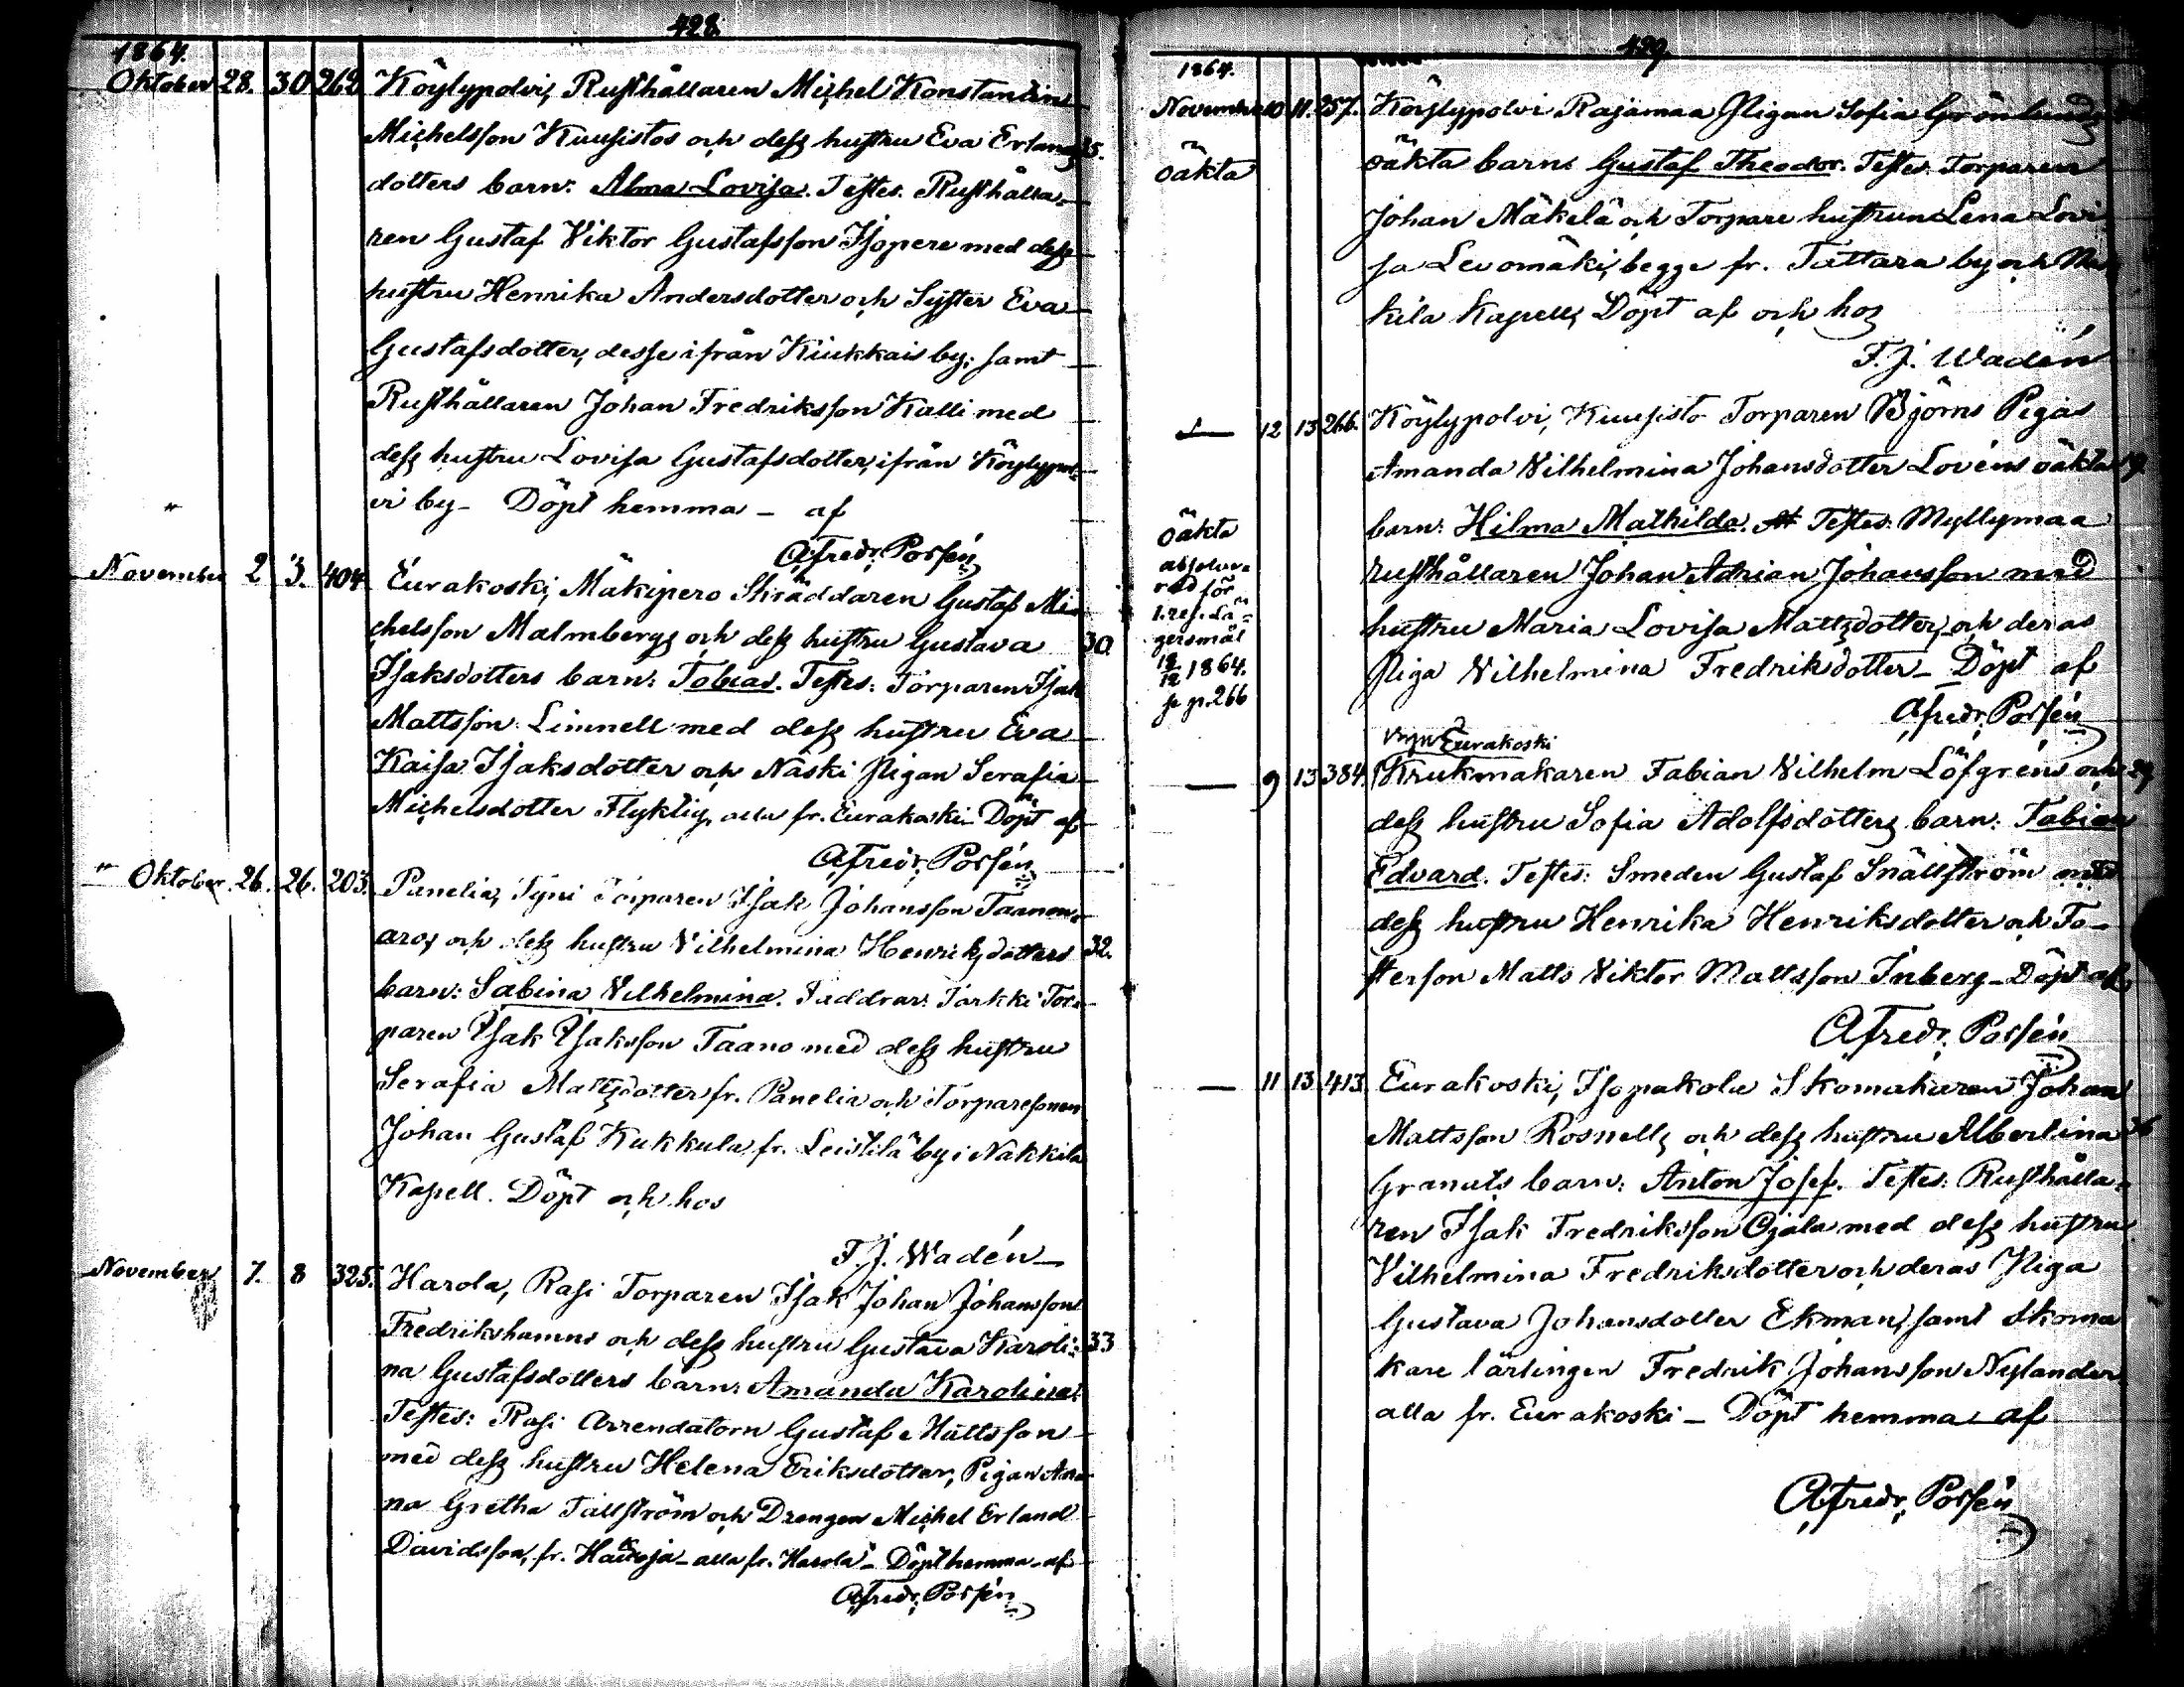 428.
1864.
Oktober 28. 30 262 Köylypolvi, Rusthållaren Michel Konstantin
Michelsson Kuusistos och dess hustru Eva Erlands 35.
dotters barn: Alma Lovisa. Testes. Rusthålla-
ren Gustaf Viktor Gustafsson Isopere med dess
hustru Henrika Andersdotter och Syster Eva
Gustafsdotter, desse ifrån Kiukkais by; samt
Rusthållaren Johan Fredriksson Kalli med
dess hustru Lovisa Gustafsdotter, ifrån Köylypol-
vi by - Döpt hemma - af
A Fredr. Porsén
November 2 3. 404 Eurakoski, Mäkipero Skräddaren Gustaf Mi-
chelsson Malmbergs och dess hustru Gustava 30.
Isaksdotters barn: Tobias. Testes: Torparen Isak
Mattsson Limnell med dess hustru Eva
Kaisa Isaksdotter och Näski Pigan Serafia
Michelsdotter Flyktig, alla fr. Eurakoski - Döpt af
A Fredr. Porsén
" Oktober 26. 26. 203. Panelia, Tyni Torparen Isak Johansson Taanon-
aros och dess hustru Vilhelmina Henriksdotters 32.
barn: Sabina Vilhelmina. Faddrar: Tarkki Tor-
paren Isak Isaksson Taano med dess hustru
Serafia Mattsdotter fr. Panelia och Torparesonen
Johan Gustaf Kukkula fr. Leistilä by i Nakkila
Kapell. Döpt och hos
F. J. Wadén
November 7. 8 325. Harola, Rasi Torparen Isak Johan Johansson
Fredrikshamns och dess hustru Gustava Karoli- 33
na Gustafsdotters barn: Amanda Karolina.
Testes: Rasi Arrendatorn Gustaf Mattsson
med dess hustru Helena Eriksdotter, Pigan An-
na Gretha Tällström och Drengen Michel Erland
Davidsson, fr. - alla fr. Harola - Döpt hemma - af
A Fredr. Porsén
429.
1864.
November 10 11. 257. Köylypolvi Rajamaa Pigan Sofia Grönlunds
oäkta oäkta barn: Gustaf Theodor. Testes. Torparen
Johan Mäkelä och Torpare hustrun Lena Lovi
sa Levomäki, begge fr. Tattara by och Nak
kila Kapell, Döpt af och hos
F. J. Wadén
— 12 13 266. Köylypolvi, Kuusisto Torparen Björns Pigas
Amanda Vilhelmina Johansdotter Lovéns oäkta 19.
oäkta barn: Hilma Mathilda. Testes: Myllymaa
absolve-
rad för
1. res. Lä-
gersmål
18/12 1864.
se p. 266
rusthållaren Johan Adrian Johansson med
hustru Maria Lovisa Mattsdotter, och deras
Piga Vilhelmina Fredriksdotter - Döpt af
A Fredr. Porsén
Eurakoski
— 9 13 384. Krukmakaren Fabian Vilhelm Löfgréns och 29
dess hustru Sofia Adolfsdotters barn: Fabian
Edvard. Testes: Smeden Gustaf Snällström med
dess hustru Henrika Henriksdotter och Fo-
sterson Matts Viktor Mattsson Inberg - Döpt af
A Fredr. Porsén
— 11 13 413 Eurakoski, Isopakola Skomakaren Johan
Mattsson Rosnells och dess hustru Albertina 36
Granats barn: Anton Josef. Testes: Rusthålla-
ren Isak Fredriksson Ojala med dess hustru
Vilhelmina Fredriksdotter och deras Piga
Gustava Johansdotter Ekman, samt Skoma
kare lärlingen Fredrik Johansson Nylander
alla fr. Eurakoski - Döpt hemma af
A Fredr. Porsén